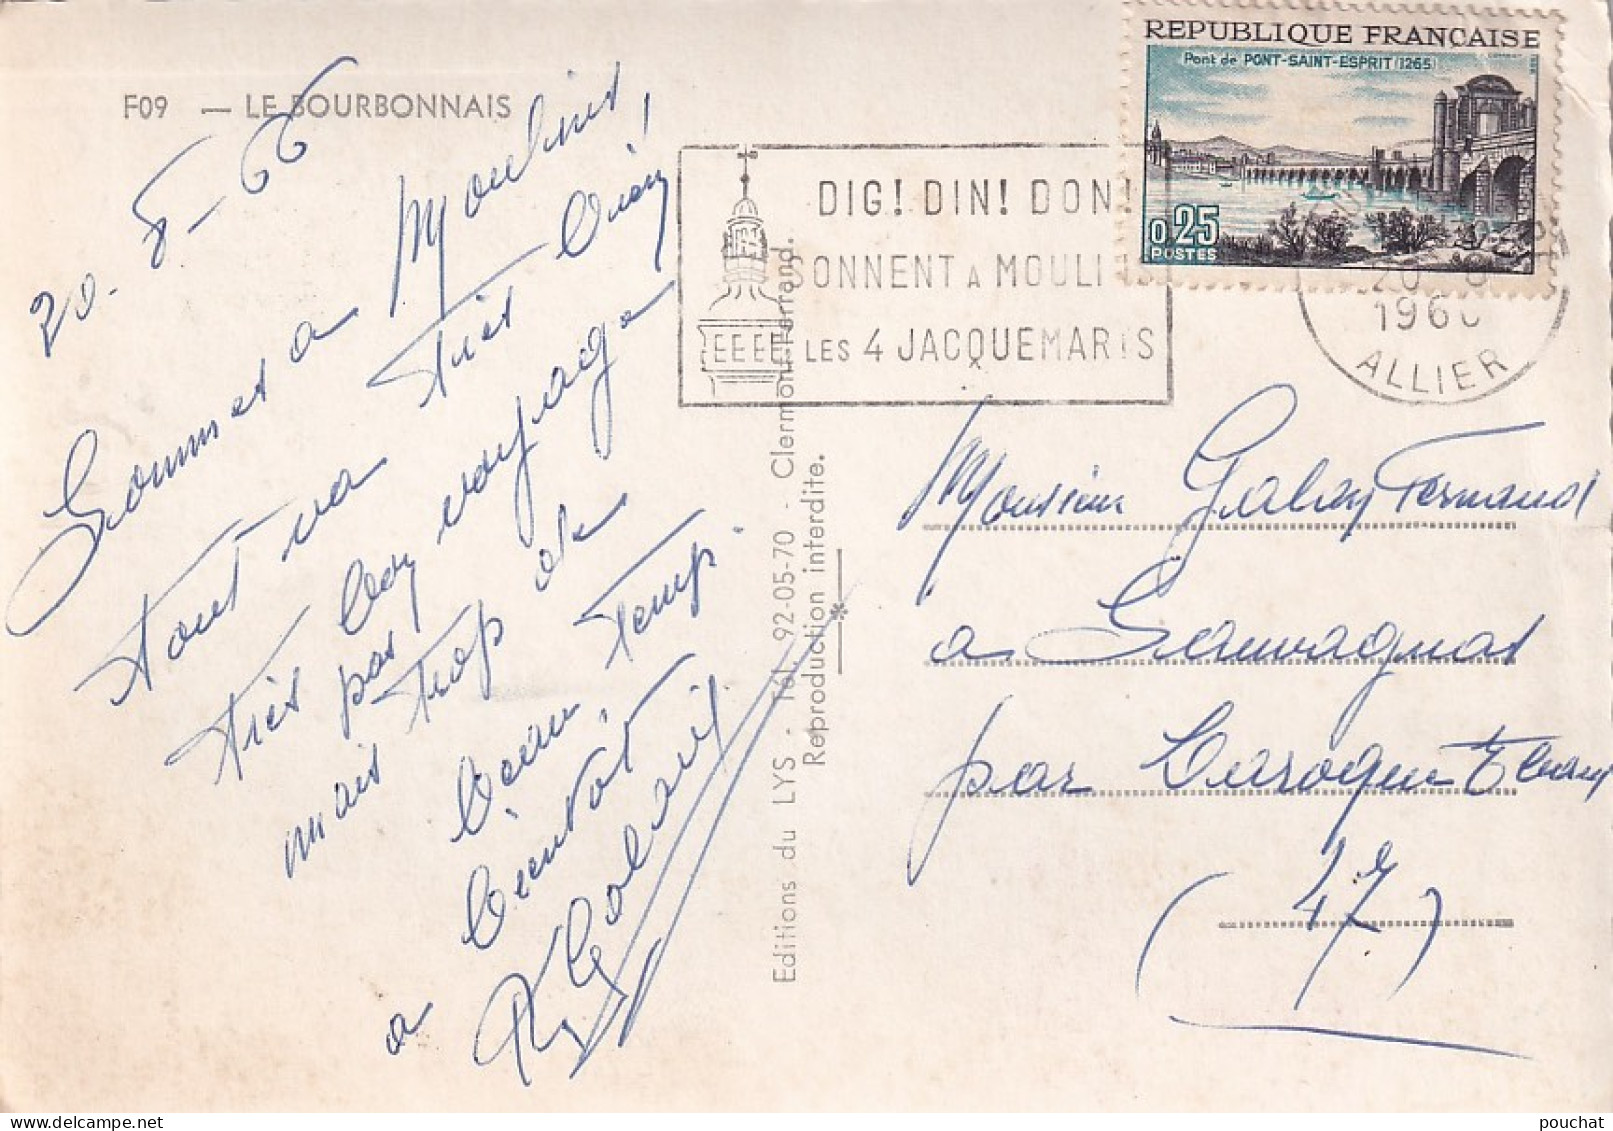 F09 — LE BOURBONNAIS
20-8-66
Sommes a Moulins,
tout va très bien,
très bon voyage
mais pas trop de
beau temp.
a bientot
REPUBLIQUE FRANÇAISE
Pont de PONT-SAINT-ESPRIT (1265)
0,25
POSTES
DIG! DIN! DON!
SONNENT A MOULINS
LES 4 JACQUEMARTS
20-8
1966
ALLIER
Editions du LYS - Tél. 92-05-70 - Clermont-Ferrand.
Reproduction interdite.
Monsieur Fernand
a Sauvagnas
par Laroque
(47)
pouchat